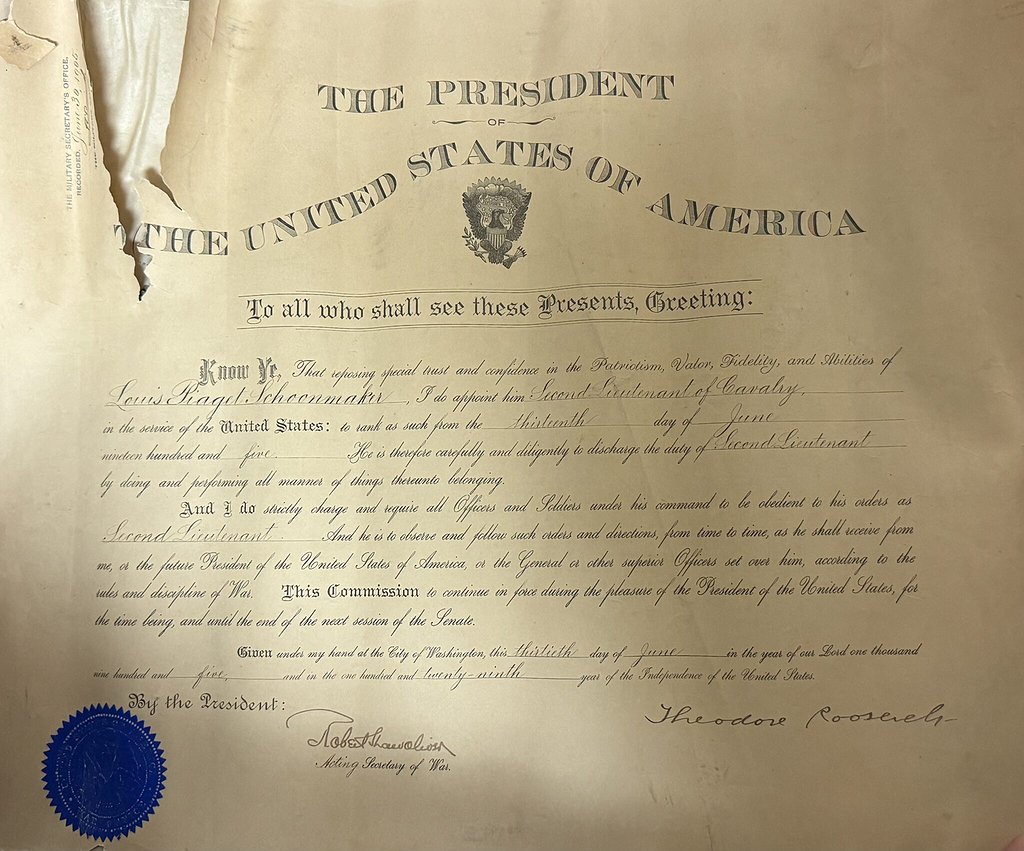 THE MILITARY SECRETARY'S OFFICE.
RECORDED, June 30, 1905
THE PRESIDENT
OF
THE UNITED STATES OF AMERICA
To all who shall see these Presents, Greeting:
Know Ye, That reposing special trust and confidence in the Patriotism, Valor, Fidelity, and Abilities of
Louis Piaget Schoonmaker, I do appoint him Second Lieutenant of Cavalry,
in the service of the United States: to rank as such from the thirteenth day of June
nineteen hundred and five. He is therefore carefully and diligently to discharge the duty of Second Lieutenant
by doing and performing all manner of things thereunto belonging.
And I do strictly charge and require all Officers and Soldiers under his command to be obedient to his orders as
Second Lieutenant. And he is to observe and follow such orders and directions, from time to time, as he shall receive from
me, or the future President of the United States of America, or the General or other superior Officers set over him, according to the
rules and discipline of War. This Commission to continue in force during the pleasure of the President of the United States, for
the time being, and until the end of the next session of the Senate.
Given under my hand at the City of Washington, this thirtieth day of June in the year of our Lord one thousand
nine hundred and five, and in the one hundred and twenty-ninth year of the Independence of the United States.
By the President:
Theodore Roosevelt
Robert Shaw Oliver
Acting Secretary of War.